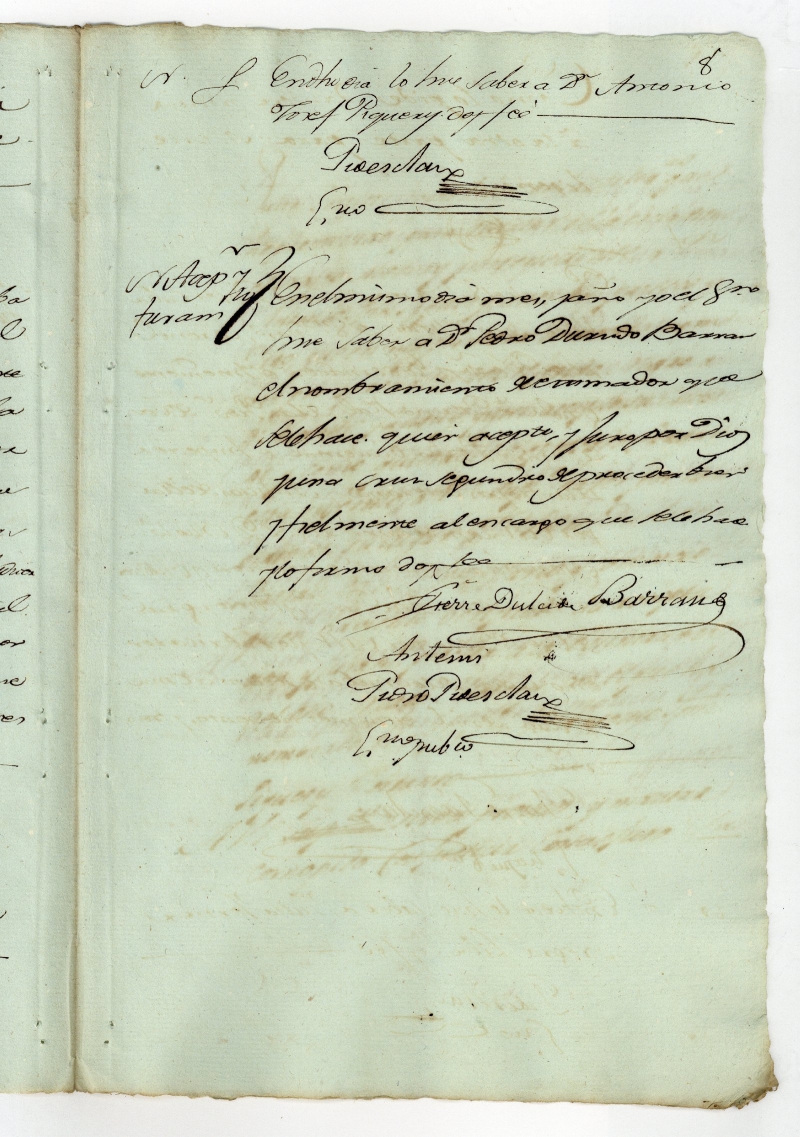 8
N. En dho dia lo hise saber a Dn. Antonio
Josef Piquery doy feé
Pedesclaux
Esno
N. Acepn. y
juram
En el mismo dia mes, y año yo el Esno
hise saber a Dn. Pedro Dulcido Barran
el nombramiento de estimador que
sele hace. quien acepto, y Juro por Dios
y una cruz segun dro de proceder bien
y fielmente al encargo que sele hace
y lo firmo doy fee
Pierre Dulcide Barran
Antemi
Pedro Pedesclaux
Esno. pubco